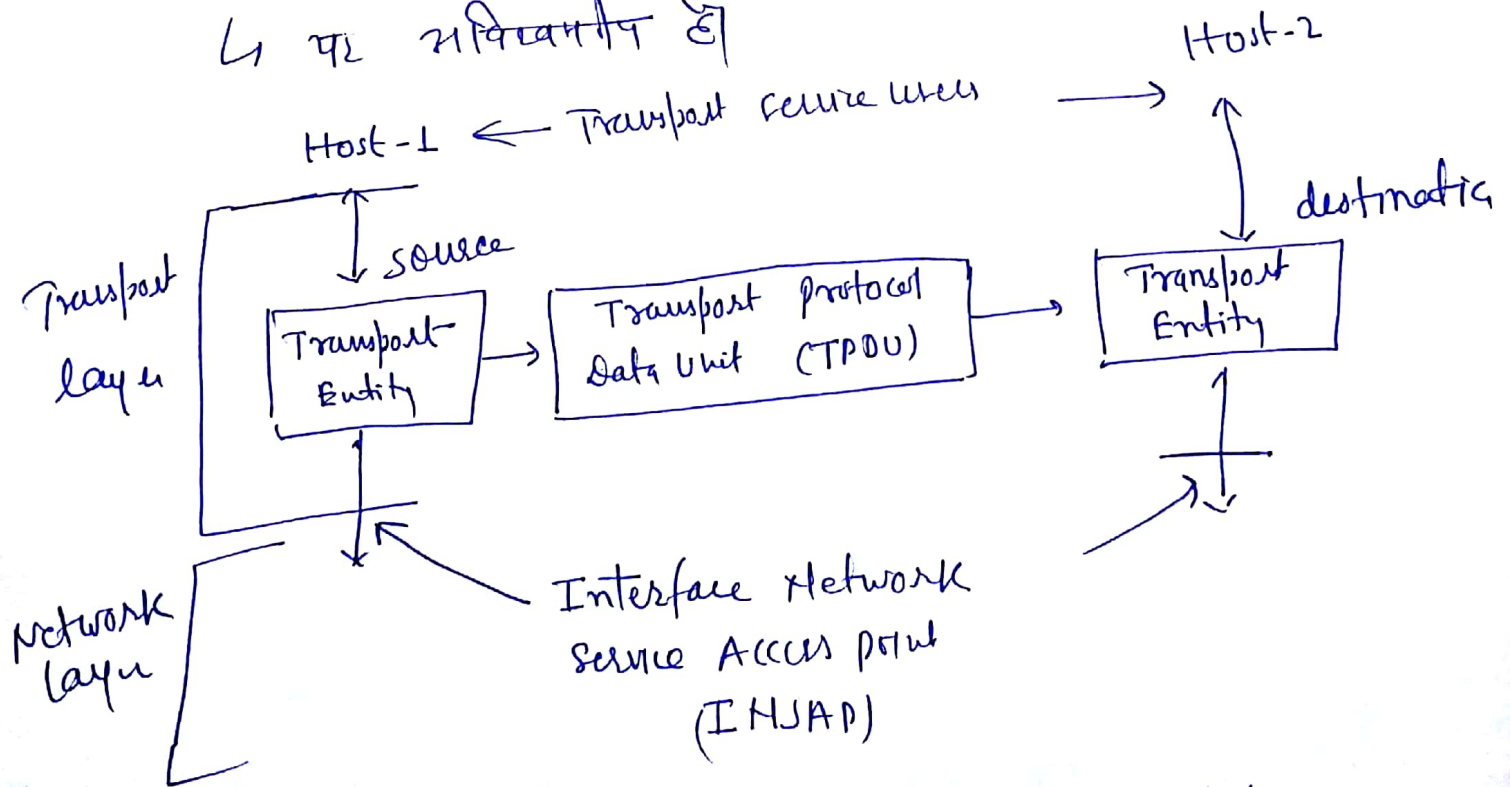 ↳ पर अविश्वसनीय है।
Host-2
Host-1 ← Transport service users →
destinatic
source
Transport
layer
Transport
Entity
Transport Protocol
Data Unit (TPDU)
Transport
Entity
Interface Network
Service Access point
(INSAP)
Network
layer